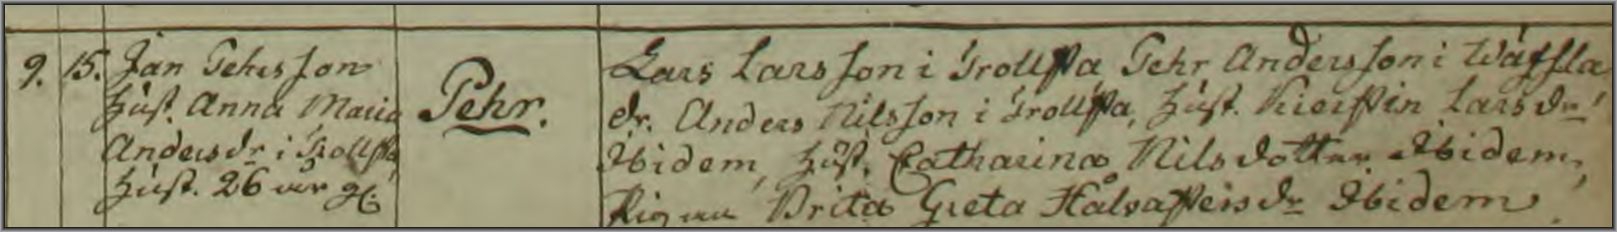 9. 15. Jan Pehrsson
Hust. Anna Maria
Andersdr i Trollsta
Hust. 26 år gl.
Pehr.
Lars Larsson i Trollsta Pehr Andersson i Wäfsla
dr. Anders Nilsson i Trollsta, Hust. Kierstin Larsdr
Ibidem, Hust. Catharina Nilsdotter Ibidem,
Pigan Brita Greta Hålsasteisdr Ibidem